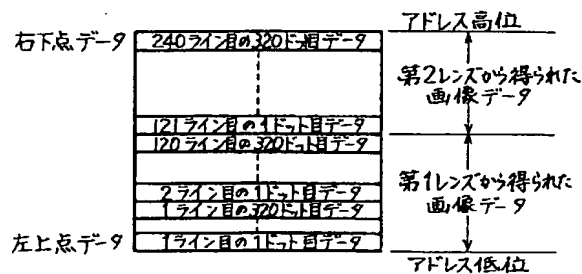 アドレス高位
右下点データ
240ライン目の320ドット目データ
第2レンズから得られた
画像データ
121ライン目の1ドット目データ
120ライン目の320ドット目データ
第1レンズから得られた
画像データ
2ライン目の1ドット目データ
1ライン目の320ドット目データ
左上点データ
1ライン目の1ドット目データ
アドレス低位